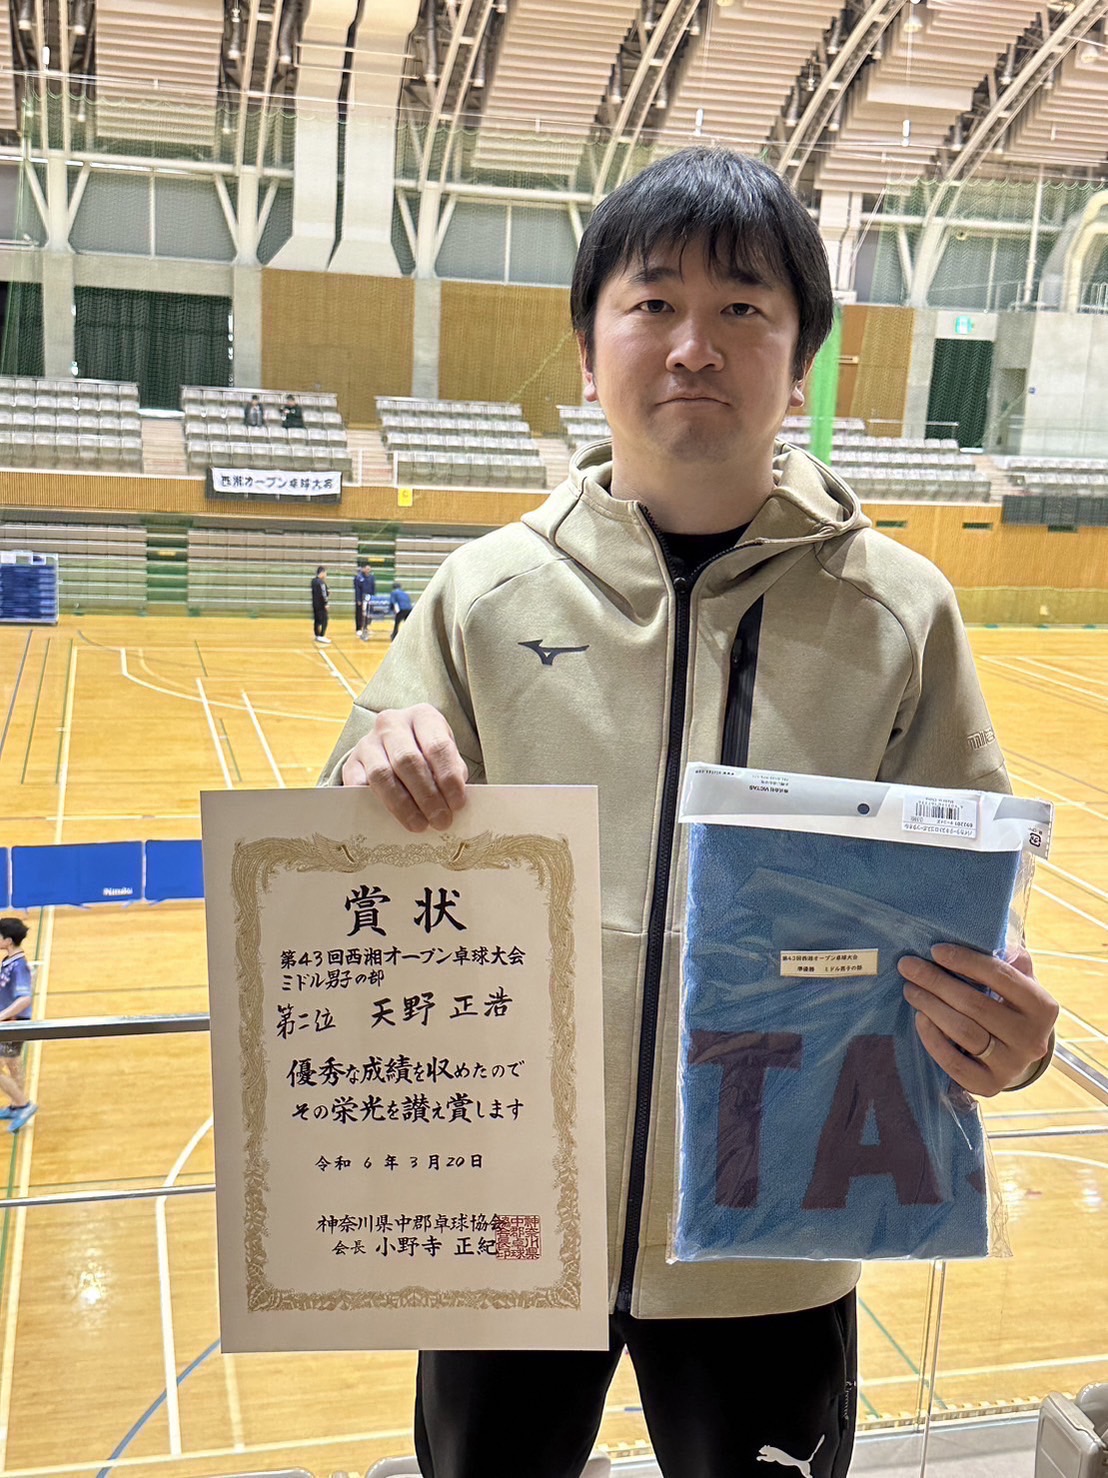 西湘オープン卓球大会
賞状
第43回西湘オープン卓球大会
ミドル男子の部
第二位 天野 正浩
優秀な成績を収めたので
その栄光を讃え賞します
令和 6 年 3 月 20 日
神奈川県中郡卓球協会
会長 小野寺 正紀
株式会社 VICTAS
第43回西湘オープン卓球大会
準優勝 ミドル男子の部
TA
Nittaku